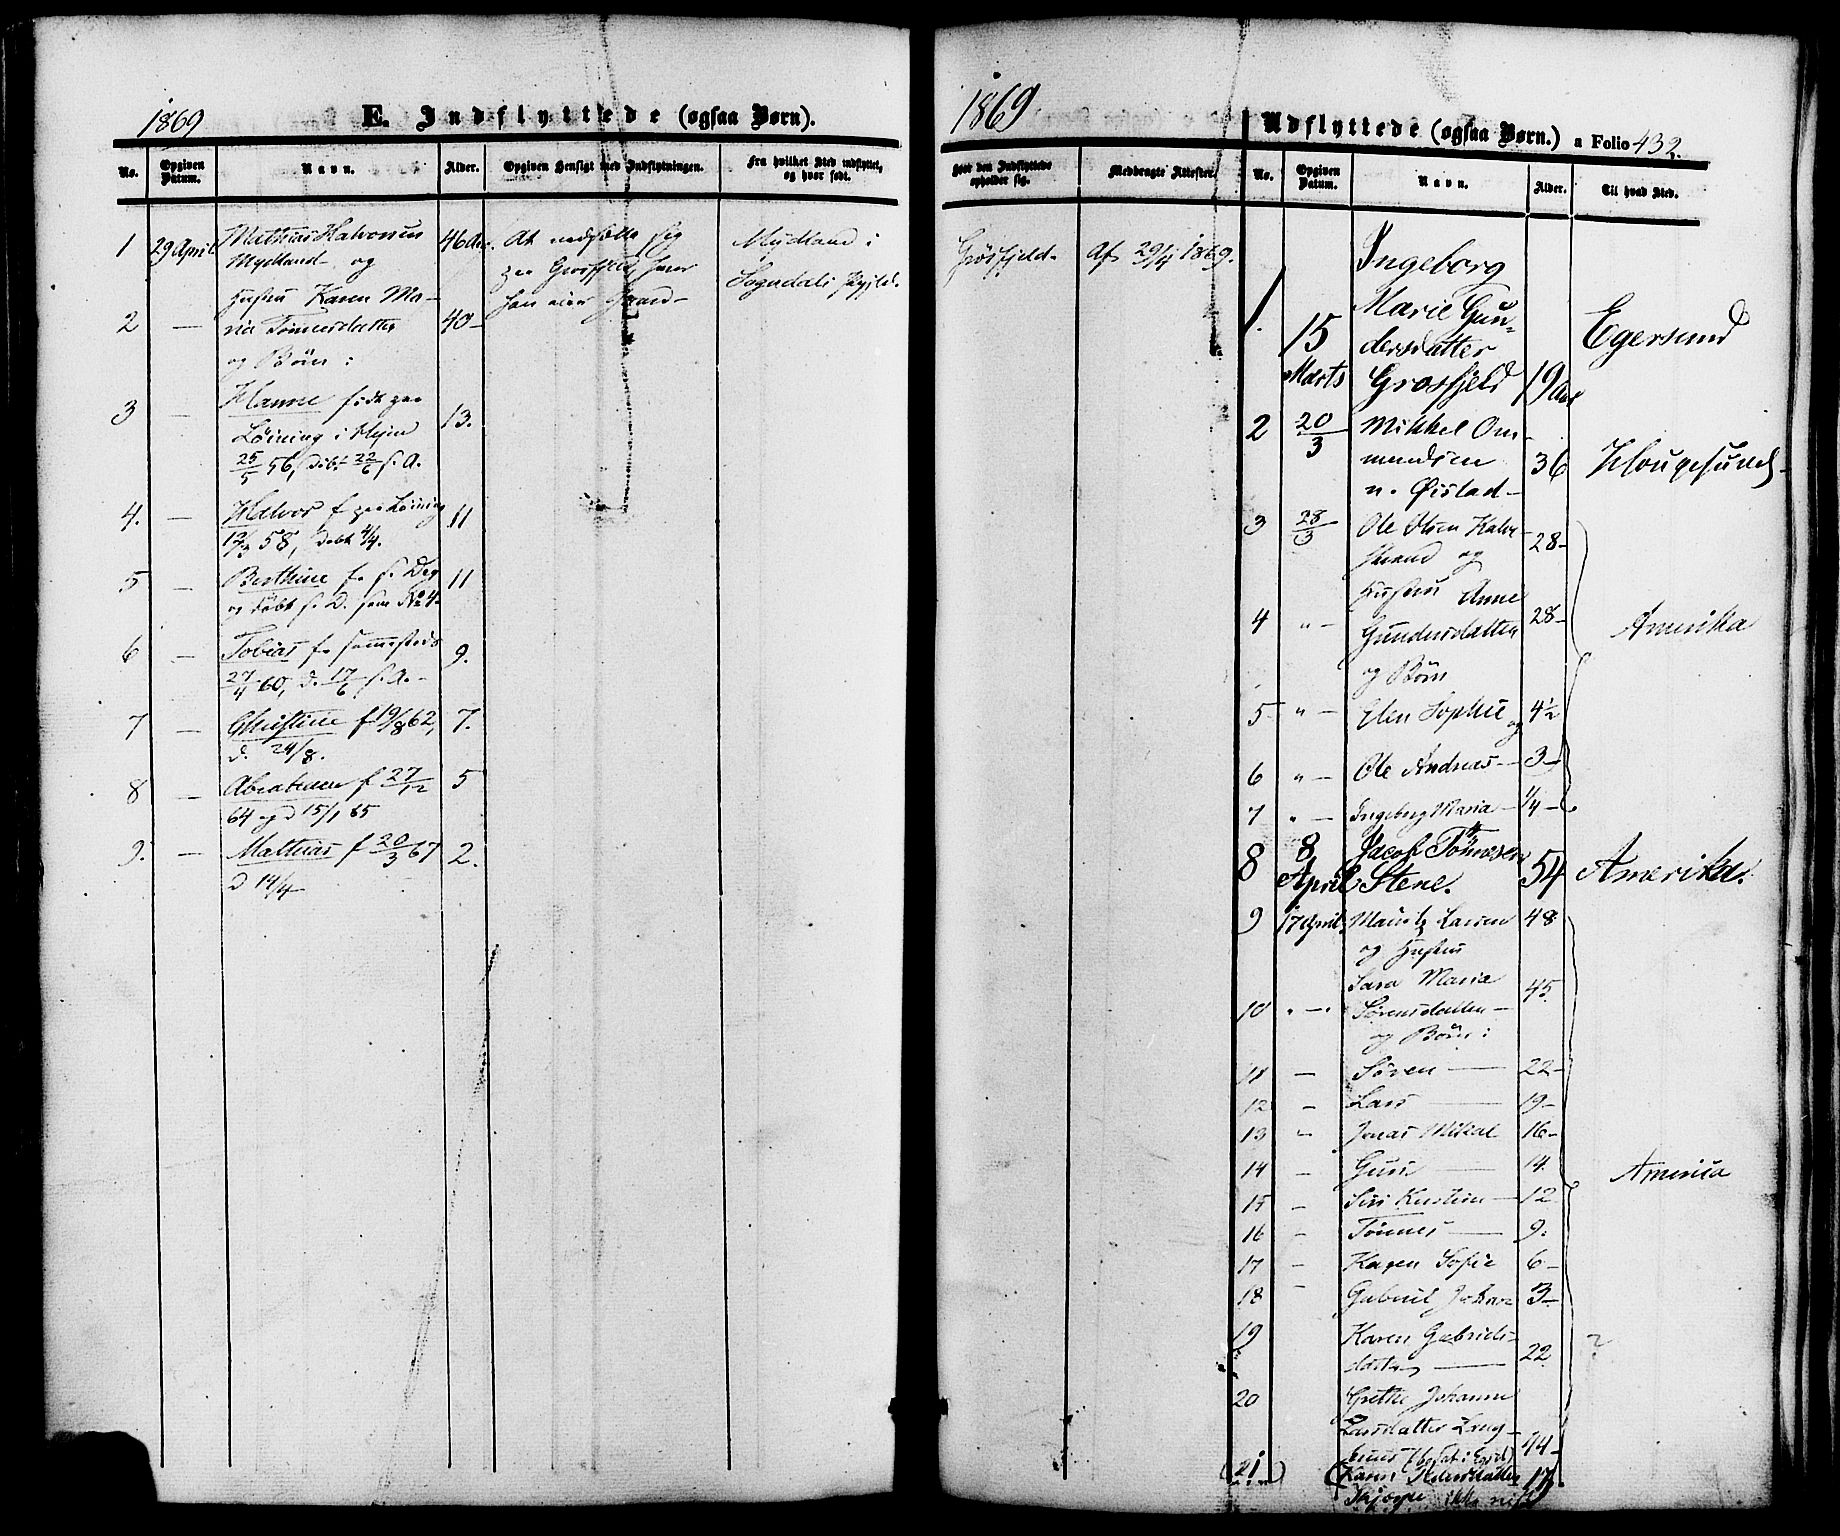 1869
E. Indflyttede (ogsaa Børn).
No. Opgiven Datum. Navn. Alder. Opgiven Hensigt med Indflytningen. Fra hvilket Sted indflyttet, og hvor født.
1 29 April Mathias Halvorsen 46 Aar At nedsætte sig Mydland i
Mydland og paa Grøsfjeld, hvor Sogndals
Hustru Karen Ma- han eier Gaard
2 — ria Tønnesdatter 40-
og Børn:
3 — Hanne født paa 13.
Løining i Hejen
25/5 56, døbt 22/6 s. A.
4. — Halvor f paa Løining 11
12/3 58, døbt 4/4.
5 — Berthine f. s. Dag 11
og døbt s. D. som No 4.
6 — Tobias f. sammesteds 9.
27/4 60, d. 17/6 s. A.-
7 — Christine f 19/8 62, 7.
d. 24/8.
8 — Abraham f 27/12 5
64 og d 15/1 65
9. — Mathias f 20/3 67 2.
d 14/4
1869
Udflyttede (ogsaa Børn.) a Folio 432.
Hvor den Indflyttede opholder sig. Medbragte Attester. No. Opgiven Datum. Navn. Alder. Til hvad Sted.
Grøsfjeld. Af 29/4 1869.
Ingeborg
1. 15 Marie Gun-
dersdatter Egersund
Marts Grøsfjeld 19 Aar
2 20/3 Mikkel Om-
mundsen 36 Hougesund
n. Øistad-
3 28/3 Ole Olsen 28-
og
Hustru Anne
4 " - Gundersdatter 28- Amerika
og Børn
5 " - Elen Sophie og 4½
6 " - Ole Andreas - 3-
7 " - Ingeborg Maria - ¼ -
8 8 Jacob Tønnesen
April Stene. 54 Amerika.
9 17 April. Mauritz Larsen 48
og Hustru
Sara Maria 45
10 " - " Sørensdatter -
og Børn:
11 — Søren — 22-
12 - Lars — 19-
13 " Jonas Mikal 16-
14 - Guri — 14. Amerika
15 - Siri Kirstine - 12
16 - Tønnes — 9.
17 - Karen Sofie 6-
18 - Gabriel Johan 3-
19 Karen Gabriels-
datter — 22 ?
20 Grethe Johanne
Larsdatter
44-
(21) (Karen Pedersdatter 17